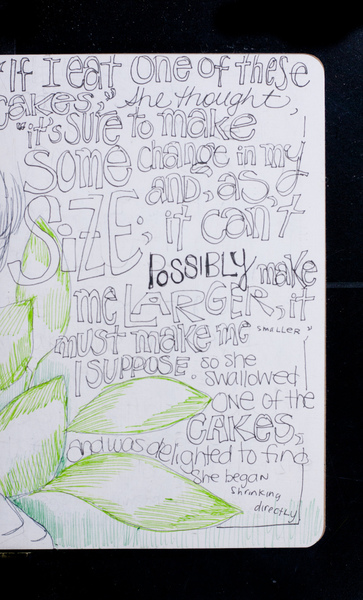 "If I eat one of these
cakes," she thought,
"it's sure to make
some change in my
SiZE; and, as,
it can't
POSSIBLY make
me LARGER, it
must make me smaller"
I SUPPOSE. so she
swallowed
ONE of the
CAKES,
and was delighted to find
she began
shrinking
directly.